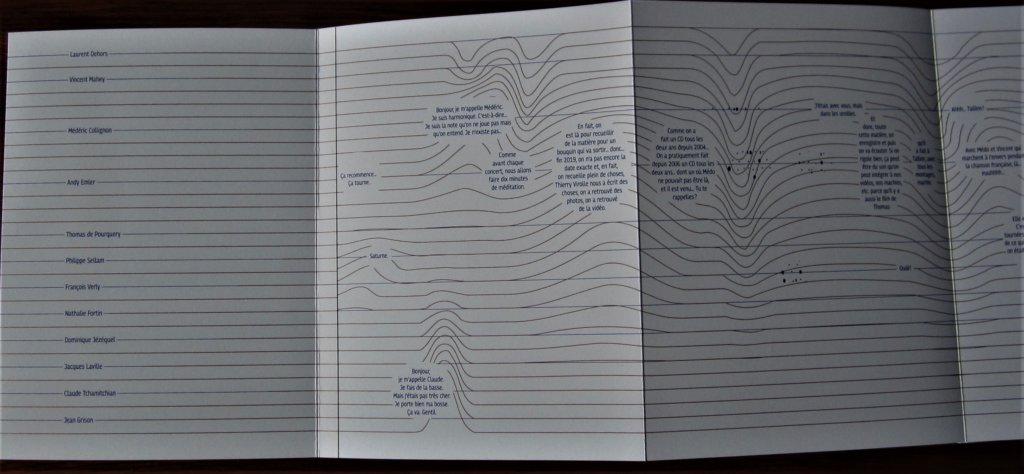 Laurent Dehors
Vincent Mahey
Médéric Collignon
Andy Emler
Thomas de Pourquery
Philippe Sellam
François Verly
Nathalie Fortin
Dominique Jézéquel
Jacques Laville
Claude Tchamitchian
Jean Grison
Ça recommence...
Ça tourne.
Bonjour, je m'appelle Médéric.
Je suis harmonique. C'est-à-dire...
Je suis la note qu'on ne joue pas mais
qu'on entend. Je n'existe pas...
Comme
avant chaque
concert, nous allons
faire dix minutes
de méditation.
Saturne.
Bonjour,
je m'appelle Claude.
Je fais de la basse.
Mais j'étais pas très cher.
Je porte bien ma bosse.
Ça va. Gentil.
En fait, on
est là pour recueillir
de la matière pour un
bouquin qui va sortir... donc...
fin 2019, on n'a pas encore la
date exacte et, en fait,
on recueille plein de choses,
Thierry Virolle nous a écrit des
choses, on a retrouvé des
photos, on a retrouvé
de la vidéo.
Comme on a
fait un CD tous les
deux ans depuis 2004...
On a pratiquement fait
depuis 2006 un CD tous les
deux ans... dont un où Médo
ne pouvait pas être là,
et il est venu... Tu te
rappelles ?
J'étais avec vous, mais
dans les oreilles.
Et
donc, toute
cette matière, on
enregistre et puis
on va écouter. Si on
rigole bien, ça peut
être du son qu'on
peut intégrer à nos
vidéos, nos machins,
etc. parce qu'il y a
aussi le film de
Thomas.
Ouáé!
Avec Médo et Vincent qui
marchent à l'envers pendant
la chanson française, là...